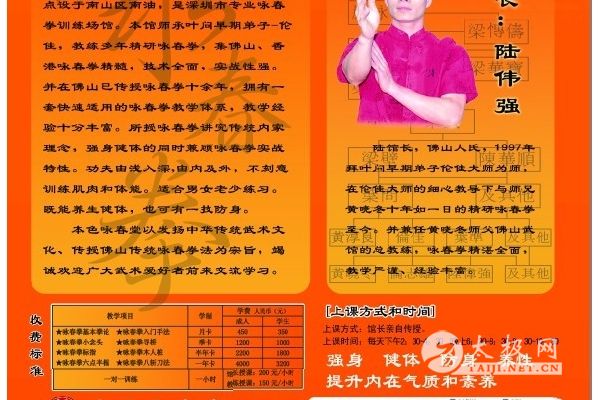 点设于南山区南油，是深圳市专业咏春
拳训练场馆。本馆师承叶问早期弟子-伦
佳，教练多年精研咏春拳，集佛山、香
港咏春拳精髓，技术全面，实战性强。
并在佛山已传授咏春拳十余年，拥有一
套快速适用的咏春拳教学体系，教学经
验十分丰富。所授咏春拳讲究传统内家
理念，强身健体的同时兼顾咏春拳实战
特性。功夫由浅入深，由内及外，不刻意
训练肌肉和体能。适合男女老少练习。
既能养生健体，也可有一技防身。
本色咏春堂以发扬中华传统武术文
化、传授佛山传统咏春拳法为宗旨，竭
诚欢迎广大武术爱好者前来交流学习。
咏春拳
长：陆伟强
梁博儔
梁華寶
陆馆长，佛山人氏，1997年
拜叶问早期弟子伦佳大师为师，
在伦佳大师的细心教导下与师兄
黄晓冬十年如一日的精研咏春拳
至今。并兼任黄晓冬师父佛山武
馆的咏春教练，咏春拳精湛全面，
教学严谨、经验丰富。
梁璧
陳華順
葉問
及其他
黃淳良
倫佳
葉準
及其他
陸偉強
及其他
收费标准
教学项目
学制
学费 人民币(元)
成人
学生
★咏春拳基本拳论 ★咏春拳入门手法 月卡 450 350
★咏春拳小念头 ★咏春拳寻桥 季卡 1200 1000
★咏春拳标指 ★咏春拳木人桩 半年卡 2200 1800
★咏春拳六点半棍 ★咏春拳八斩刀法 一年卡 4000 3200
一对一训练 一小时
馆长授课：200 元/小时
教练授课：150 元/小时
[上课方式和时间]
上课方式：馆长亲自传授。
上课时间：每天下午2：30-
强身 健体 防身 养性
提升内在气质和素养
太极网